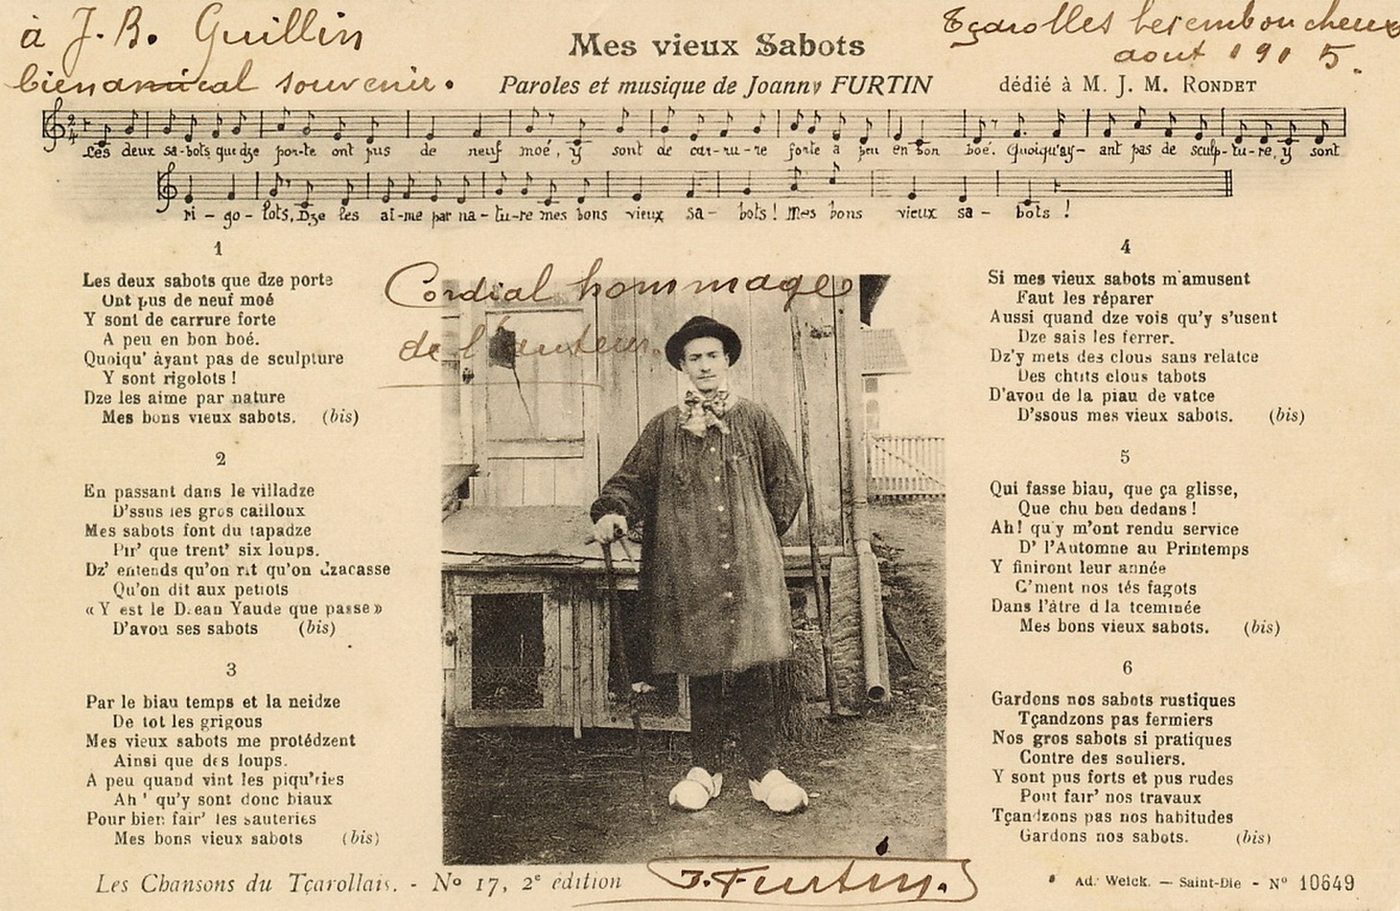 à J. B. Guillin
bien amical souvenir.
Tçarolles les emboucheux
aout 1915.
Mes vieux Sabots
Paroles et musique de Joanny FURTIN
dédié à M. J. M. RONDET
Les deux sa-bots que dze por-te ont pus de neuf moé, y sont de car-ru-re forte à peu en bon boé. Quoiqu'ay-ant pas de sculp-tu-re, y sont
ri-go-lots, Dze les ai-me par na-tu-re mes bons vieux sa-bots! Mes bons vieux sa-bots!
1
Les deux sabots que dze porte
Ont pus de neuf moé
Y sont de carrure forte
A peu en bon boé.
Quoiqu' àyant pas de sculpture
Y sont rigolots !
Dze les aime par nature
Mes bons vieux sabots. (bis)
2
En passant dans le villadze
D'ssus les gros cailloux
Mes sabots font du tapadze
Pir' que trent' six loups.
Dz' entends qu'on rit qu'on dzacasse
Qu'on dit aux petiots
« Y est le D.ean Yaude que passe »
D'avou ses sabots (bis)
3
Par le biau temps et la neidze
De tot les grigous
Mes vieux sabots me protédzent
Ainsi que des loups.
A peu quand vint les piqu'ries
Ah ! qu'y sont donc biaux
Pour bien fair' les sauteries
Mes bons vieux sabots (bis)
Cordial hommage
de l'auteur.
4
Si mes vieux sabots m'amusent
Faut les réparer
Aussi quand dze vois qu'y s'usent
Dze sais les ferrer.
Dz'y mets des clous sans relatce
Des chtits clous tabots
D'avou de la piau de vatce
D'ssous mes vieux sabots. (bis)
5
Qui fasse biau, que ça glisse,
Que chu ben dedans !
Ah! qu'y m'ont rendu service
D' l'Automne au Printemps
Y finiront leur année
C'ment nos tés fagots
Dans l'âtre d la tceminée
Mes bons vieux sabots. (bis)
6
Gardons nos sabots rustiques
Tçandzons pas fermiers
Nos gros sabots si pratiques
Contre des souliers.
Y sont pus forts et pus rudes
Pont fair' nos travaux
Tçandzons pas nos habitudes
Gardons nos sabots. (bis)
Les Chansons du Tçarollais. - No 17, 2e édition
J. Furtin.
Ad. Weick. — Saint-Dié - No 10649